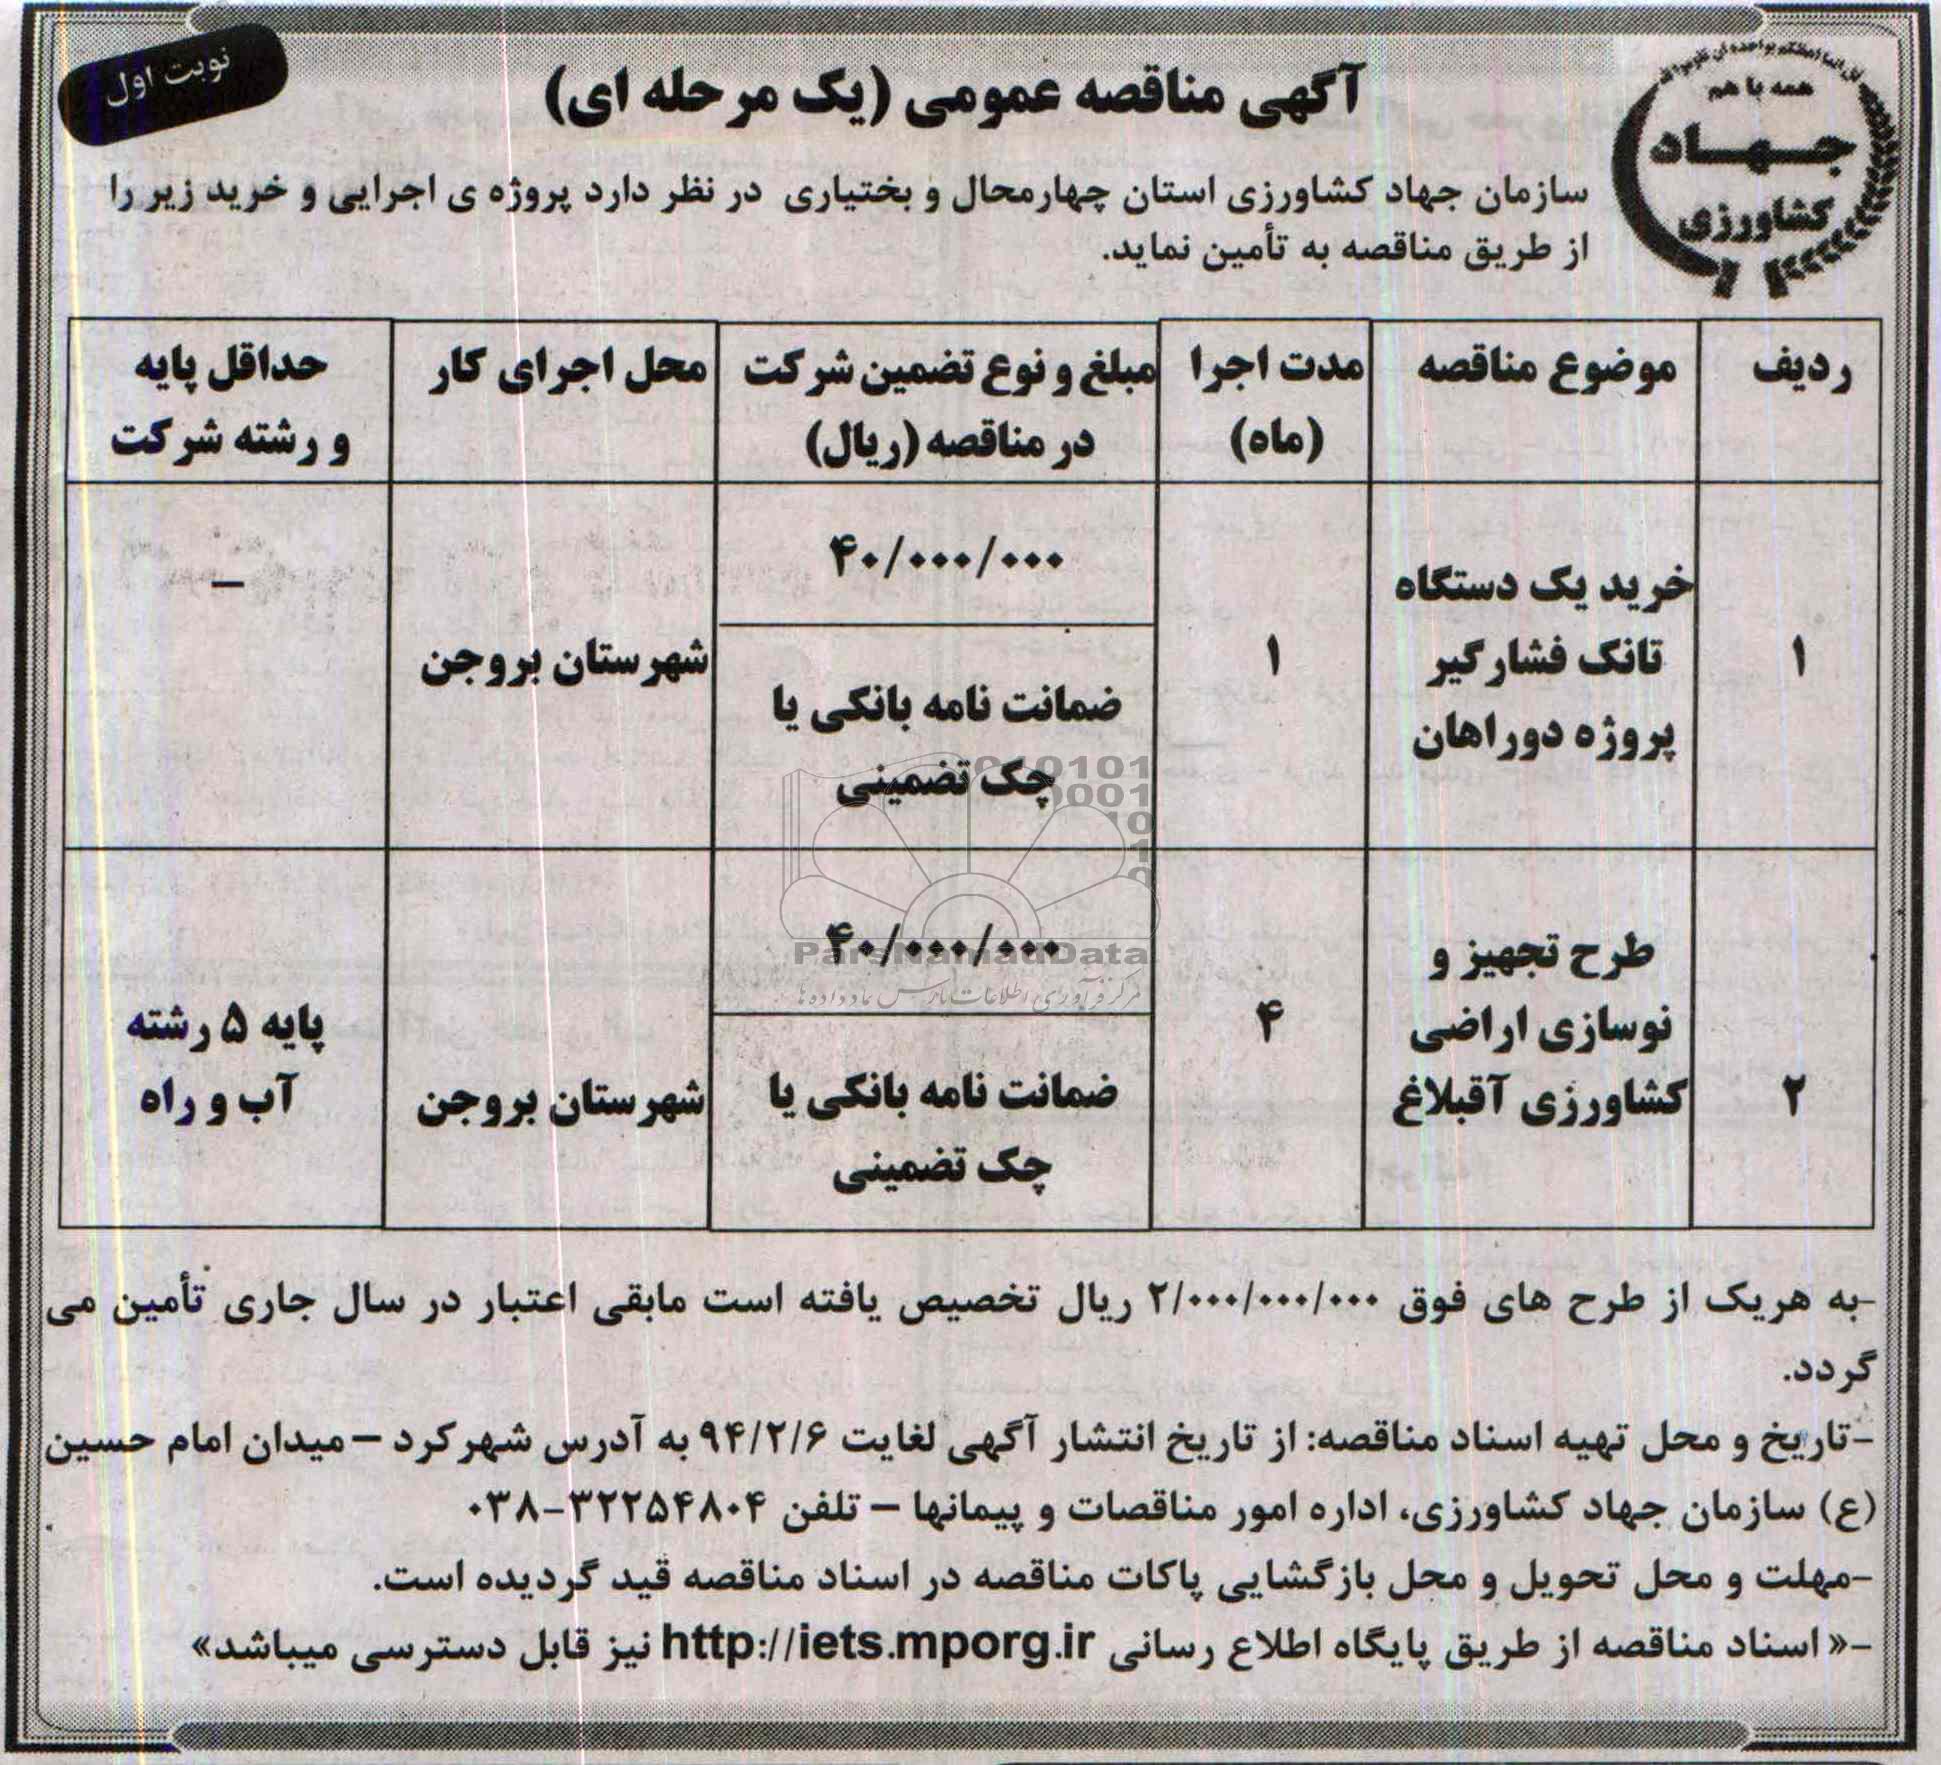 نوبت اول
آگهی مناقصه عمومی (یک مرحله ای)
همه با هم
جهاد
کشاورزی
سازمان جهاد کشاورزی استان چهارمحال و بختیاری در نظر دارد پروژه ی اجرایی و خرید زیر را
از طریق مناقصه به تأمین نماید.
ردیف
موضوع مناقصه
مدت اجرا
(ماه)
مبلغ و نوع تضمین شرکت
در مناقصه (ریال)
محل اجرای کار
حداقل پایه
و رشته شرکت
۱
خرید یک دستگاه
تانک فشارگیر
پروژه دوراهان
۱
۴۰/۰۰۰/۰۰۰
ضمانت نامه بانکی یا
چک تضمینی
شهرستان بروجن
–
۲
طرح تجهیز و
نوسازی اراضی
کشاورزی آقبلاغ
۴
۴۰/۰۰۰/۰۰۰
ضمانت نامه بانکی یا
چک تضمینی
شهرستان بروجن
پایه ۵ رشته
آب و راه
ParsNamadData
مرکز فرآوری اطلاعات پارس نماد داده ها
-به هریک از طرح های فوق ۲/۰۰۰/۰۰۰/۰۰۰ ریال تخصیص یافته است مابقی اعتبار در سال جاری تأمین می
گردد.
-تاریخ و محل تهیه اسناد مناقصه: از تاریخ انتشار آگهی لغایت ۹۴/۲/۶ به آدرس شهرکرد – میدان امام حسین
(ع) سازمان جهاد کشاورزی، اداره امور مناقصات و پیمانها – تلفن ۳۲۲۵۴۸۰۴-۰۳۸
-مهلت و محل تحویل و محل بازگشایی پاکات مناقصه در اسناد مناقصه قید گردیده است.
-« اسناد مناقصه از طریق پایگاه اطلاع رسانی http://iets.mporg.ir نیز قابل دسترسی میباشد»